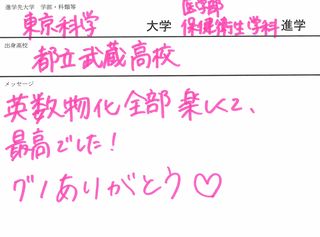 進学先大学 学部・科類等
医学部
東京科学 大学 保健衛生学科 進学
出身高校
都立武蔵高校
メッセージ
英数物化全部楽しくて、
最高でした！
グノありがとう♡